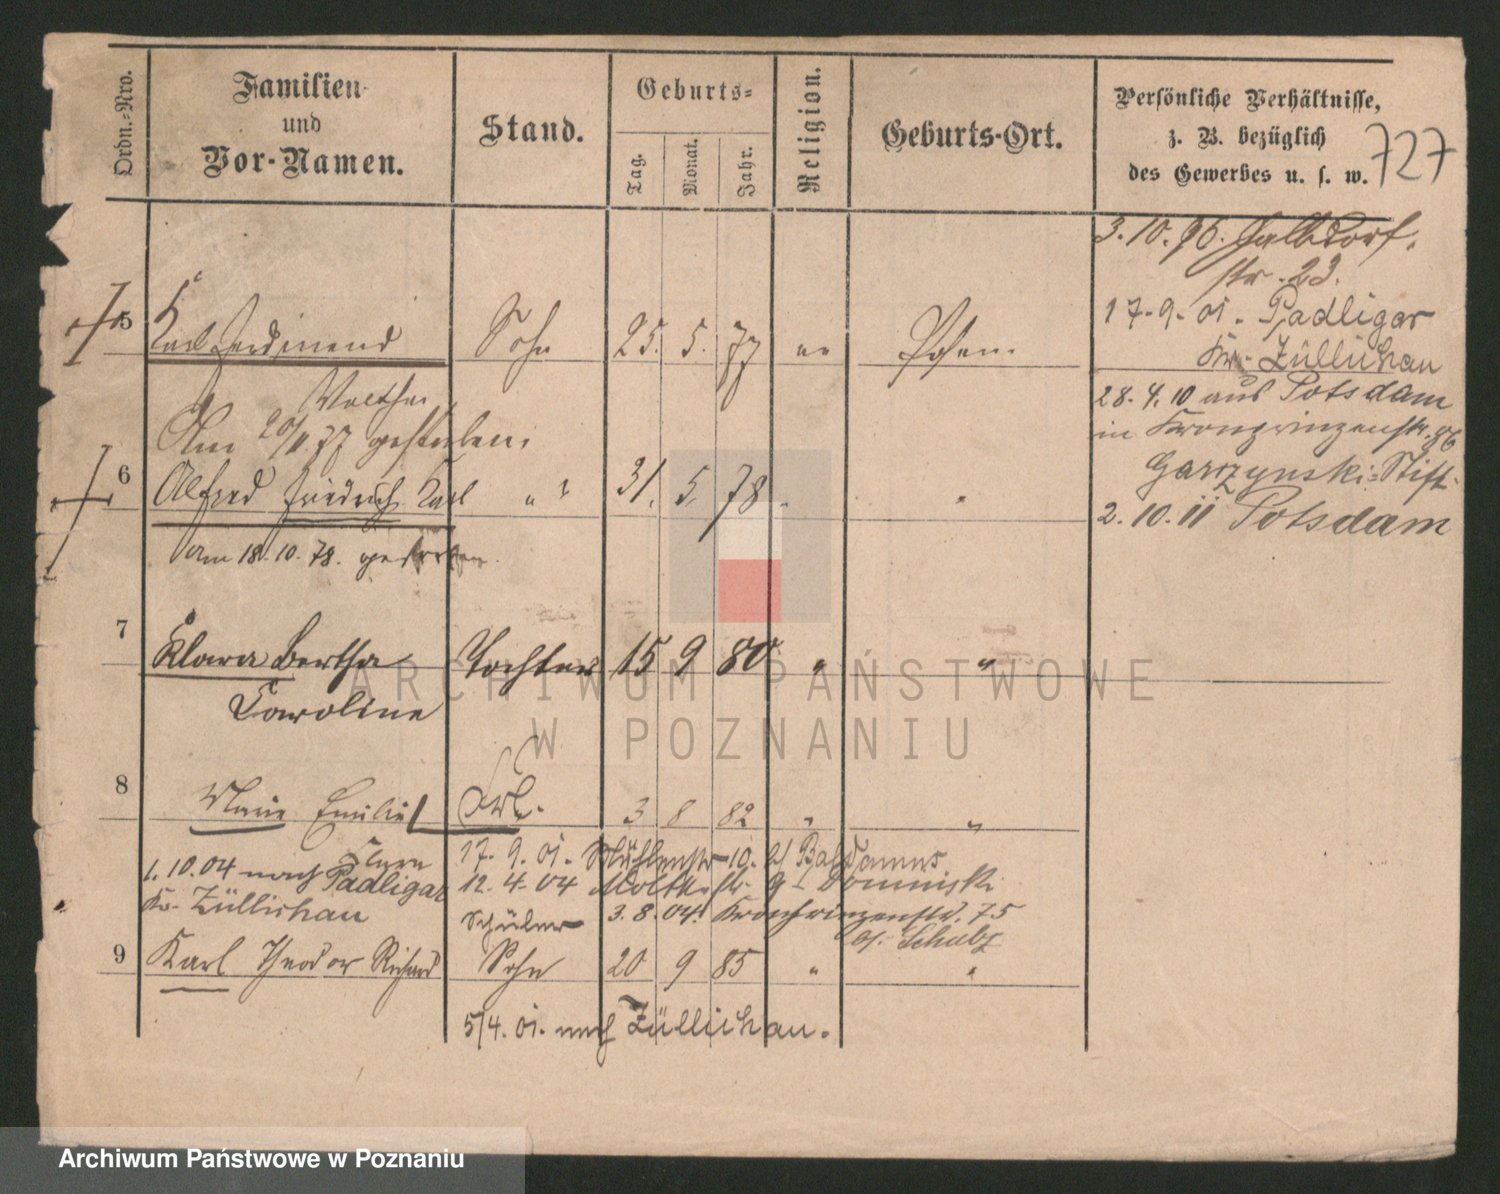 Ordn.-Nro.
Familien-
und
Vor-Namen.
Stand.
Geburts-
Tag.
Monat.
Jahr.
Religion.
Geburts-Ort.
Persönliche Verhältnisse,
z. B. bezüglich
des Gewerbes u. s. w.
727
3.10.96.
str. 23.
17.9.01. Padligar
Kr. Züllichau
5 Karl Ferdinand Sohn 25. 5. 77 Posen.
Walther
28.4.10 aus Potsdam
in Kronprinzenstr. 96
Am 20/11 77 gestorben.
Garczynski=Stift.
6 Alfred Friedrich Karl " 31. 5. 78 "
2.10.11 Potsdam
am 18.10.78. gestorben.
7 Klara Bertha Tochter 15 9 80 " "
Caroline
8 Marie Emilie 3 8 82 " "
Clara
17.9.01. Mühlenstr 10.
1.10.04 nach Padligar
12.4.04 Moltkestr. 9 Dominski
Kr. Züllichau
Schüler 3.8.04. Kronprinzenstr. 75
b/ Schulz
9 Karl Theodor Richard Sohn 20 9 85 " "
5/4.01. nach Züllichau.
ARCHIWUM PAŃSTWOWE
W POZNANIU
Archiwum Państwowe w Poznaniu